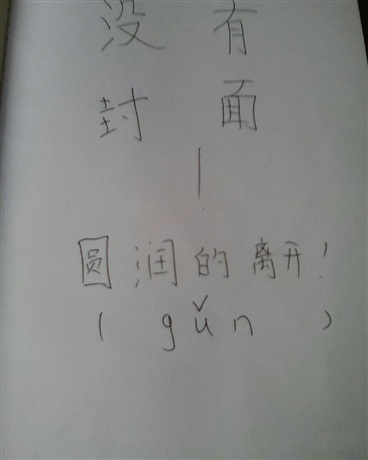 没有
封面
|
圆润的离开!
(gǔn)